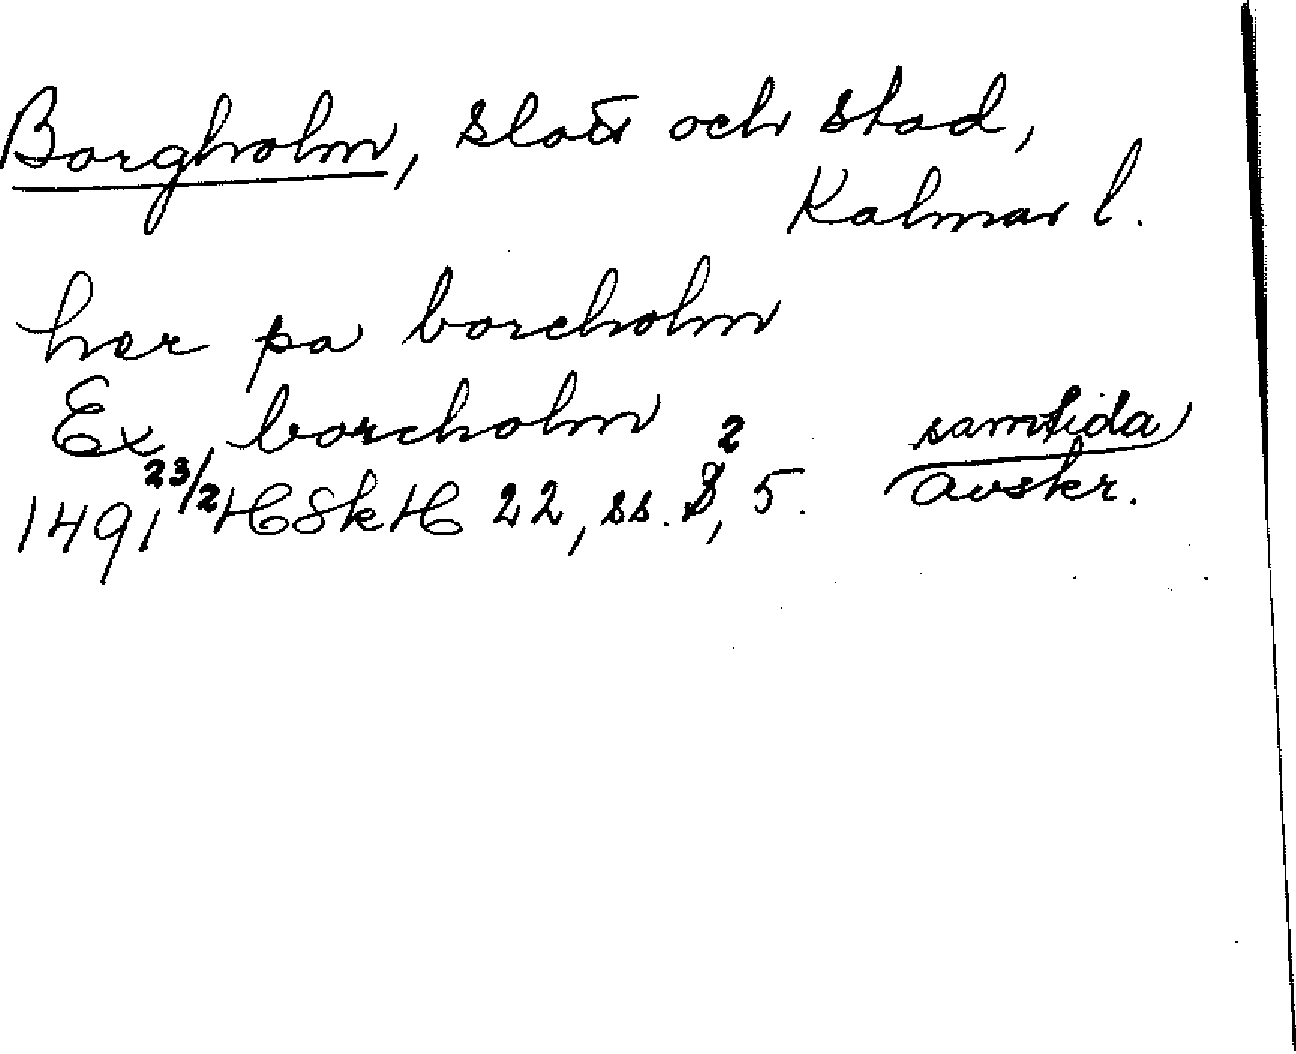 Borgholm, slott och stad,
Kalmar l.
her pa borcholm
Ex borcholm
1491 23/2 HSkH 22, ss. 2, 5. samtida avskr.